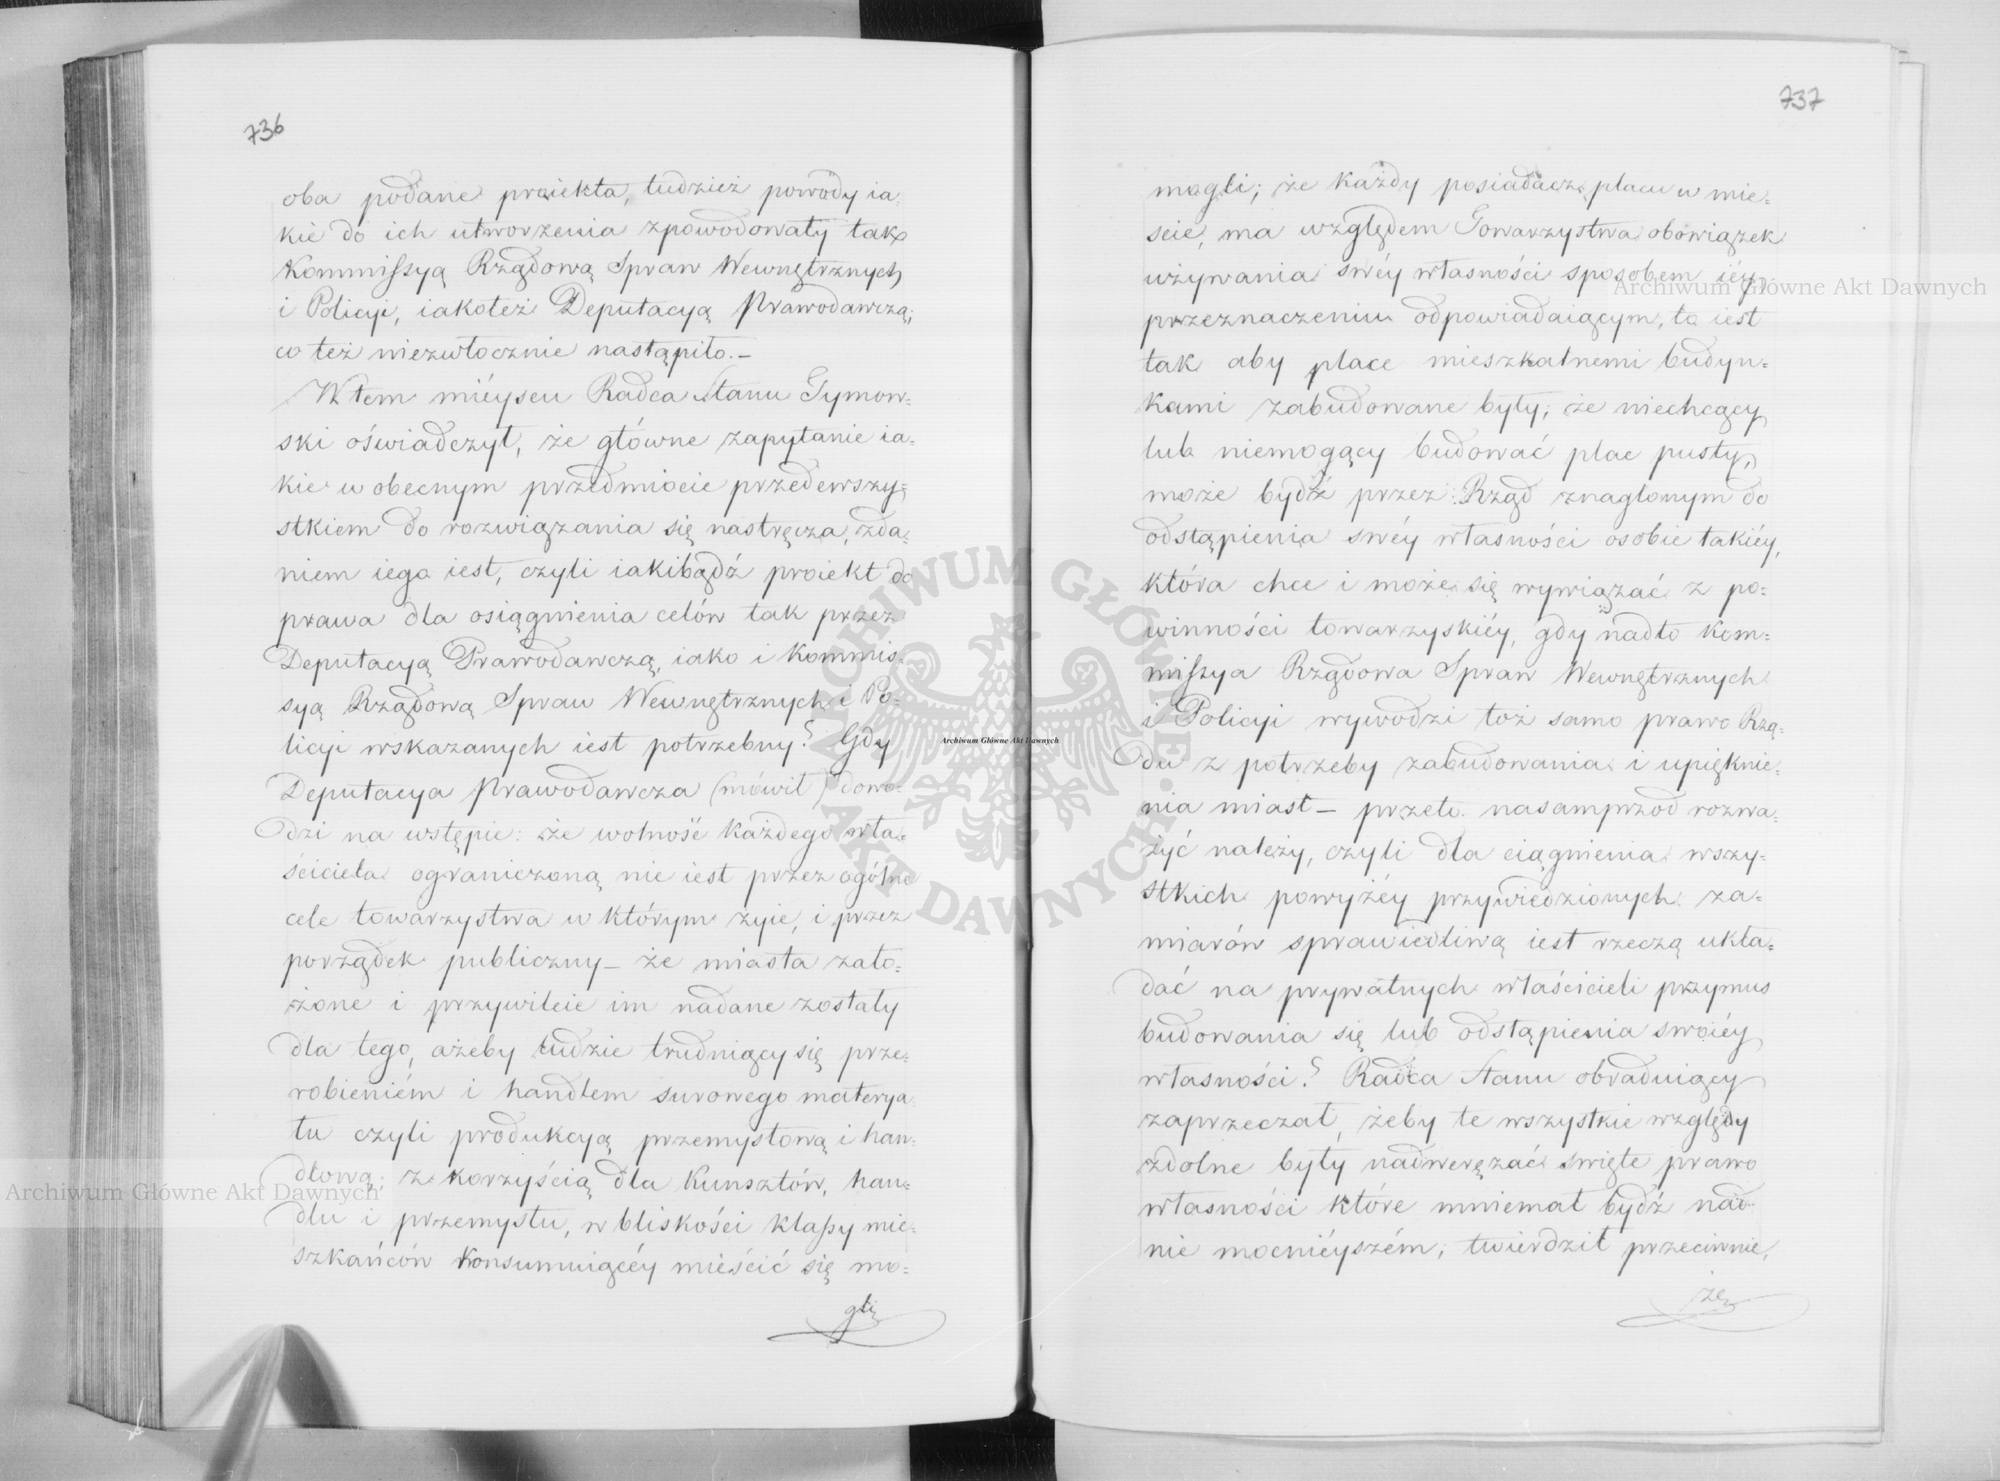 736
oba podane proiekta, tudzież powody ia-
kie do ich utworzenia zpowodowały tak
Kommissyą Rządową Spraw Wewnętrznych
i Policyi, iakoteż Deputacyą Prawodawczą;
co też niezwłocznie nastąpiło.—
W tem miéyscu Radca Stanu Tymow-
ski oświadczył, że główne zapytanie ia-
kie w obecnym przedmiocie przedewszy-
stkiem do rozwiązania się nastręcza, zda-
niem iego iest, czyli iakibądź proiekt do
prawa dla osiągnienia celów tak przez
Deputacyą Prawodawczą, iako i Kommis-
syą Rządową Spraw Wewnętrznych i Po-
licyi wskazanych iest potrzebny? Gdy
Deputacya Prawodawcza (mówił) dowo-
dzi na wstępie: że wolność każdego wła-
ściciela ograniczoną nie iest przez ogólne
cele towarzystwa w którym żyie, i przez
porządek publiczny — że miasta zało-
żone i przywileie im nadane zostały
dla tego, ażeby ludzie trudniący się prze-
robieniém i handlem surowego materya-
łu czyli produkcyą przemysłową i han-
dlową; z korzyścią dla Kunsztów, han-
dlu i przemysłu, w bliskości klassy mie-
szkańców konsumuiącéy mieścić się mo-
gli
737
mogli; że każdy posiadacz placu w mie-
scie, ma względem Towarzystwa obowiązek
używania swéy własności sposobem iéy
przeznaczeniu odpowiadaiącym, to iest
tak aby place mieszkalnemi budyn-
kami zabudowane były; że niechcący
lub niemogący budować plac pusty,
może bydź przez Rząd znaglonym do
odstąpienia swéy własności osobie takiéy,
która chce i może się wywiązać z po-
winności towarzyskiéy, gdy nadto Kom-
missya Rządowa Spraw Wewnętrznych
i Policyi wywodzi toż samo prawo Rzą-
du z potrzeby zabudowania i upięknie-
nia miast — przeto nasamprzod rozwa-
żyć należy, czyli dla ciągnienia wszy-
stkich powyżéy przywiedzionych za-
miarów sprawiedliwą iest rzeczą ukła-
dać na prywatnych właścicieli przymus
budowania się lub odstąpienia swoiéy
własności? Radca Stanu obraduiący
zaprzeczał, żeby te wszystkie względy
zdolne były nadweręzać święte prawo
własności które mniemał bydź nad-
nie mocniéyszém; twierdził przeciwnie,
że
Archiwum Główne Akt Dawnych
Archiwum Główne Akt Dawnych
Archiwum Główne Akt Dawnych
ARCHIWUM GŁÓWNE AKT DAWNYCH